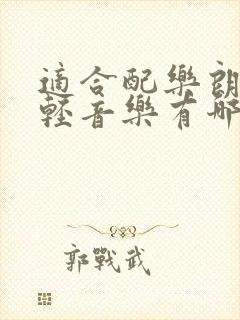 適合配樂朗
輕音樂有哪
郭戰武